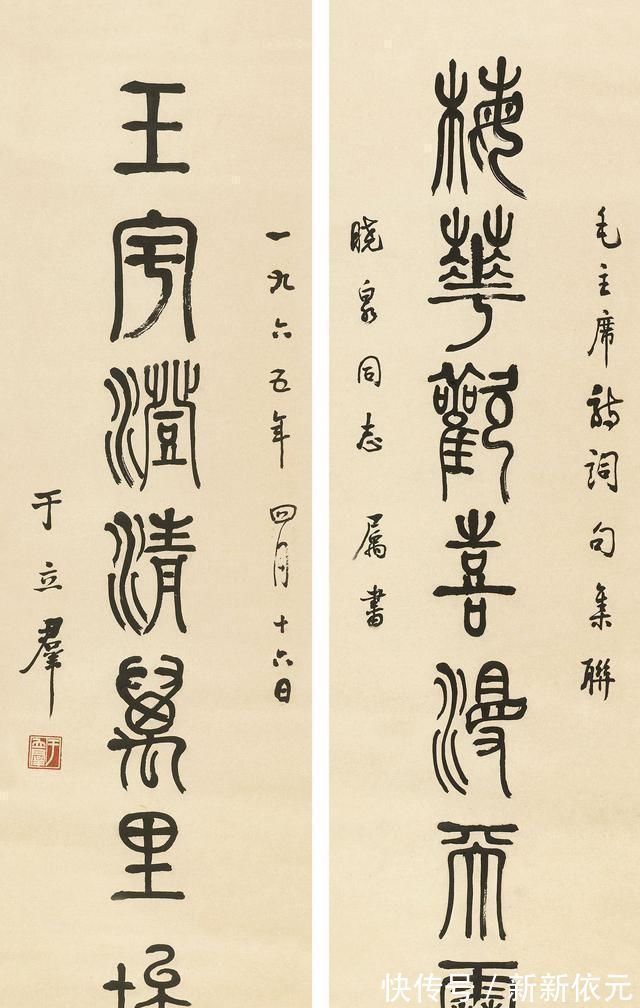 毛主席詩詞句集聯
梅華歡喜漫天
晓泉同志属書
一九六五年四月十六日
玉宇澄清萬里
于立羣
快传号/新新依元